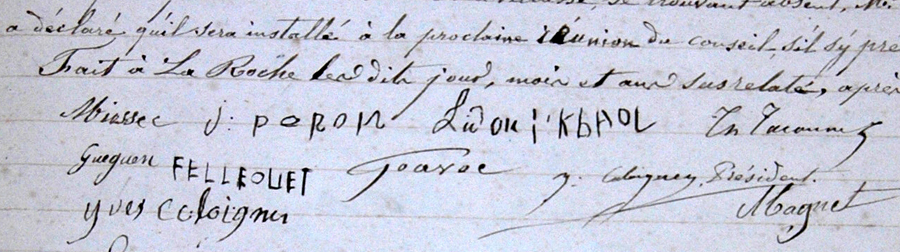 se trouvant absent, Mr
a déclaré qu'il sera installé à la prochaine réunion du conseil s'il s'y pré
Fait à La Roche les dits jour, mois et an susrelatés, après
Miossec J: PERON
Gueguen FELLEOUET Président.
Yves Coloigner Magnet